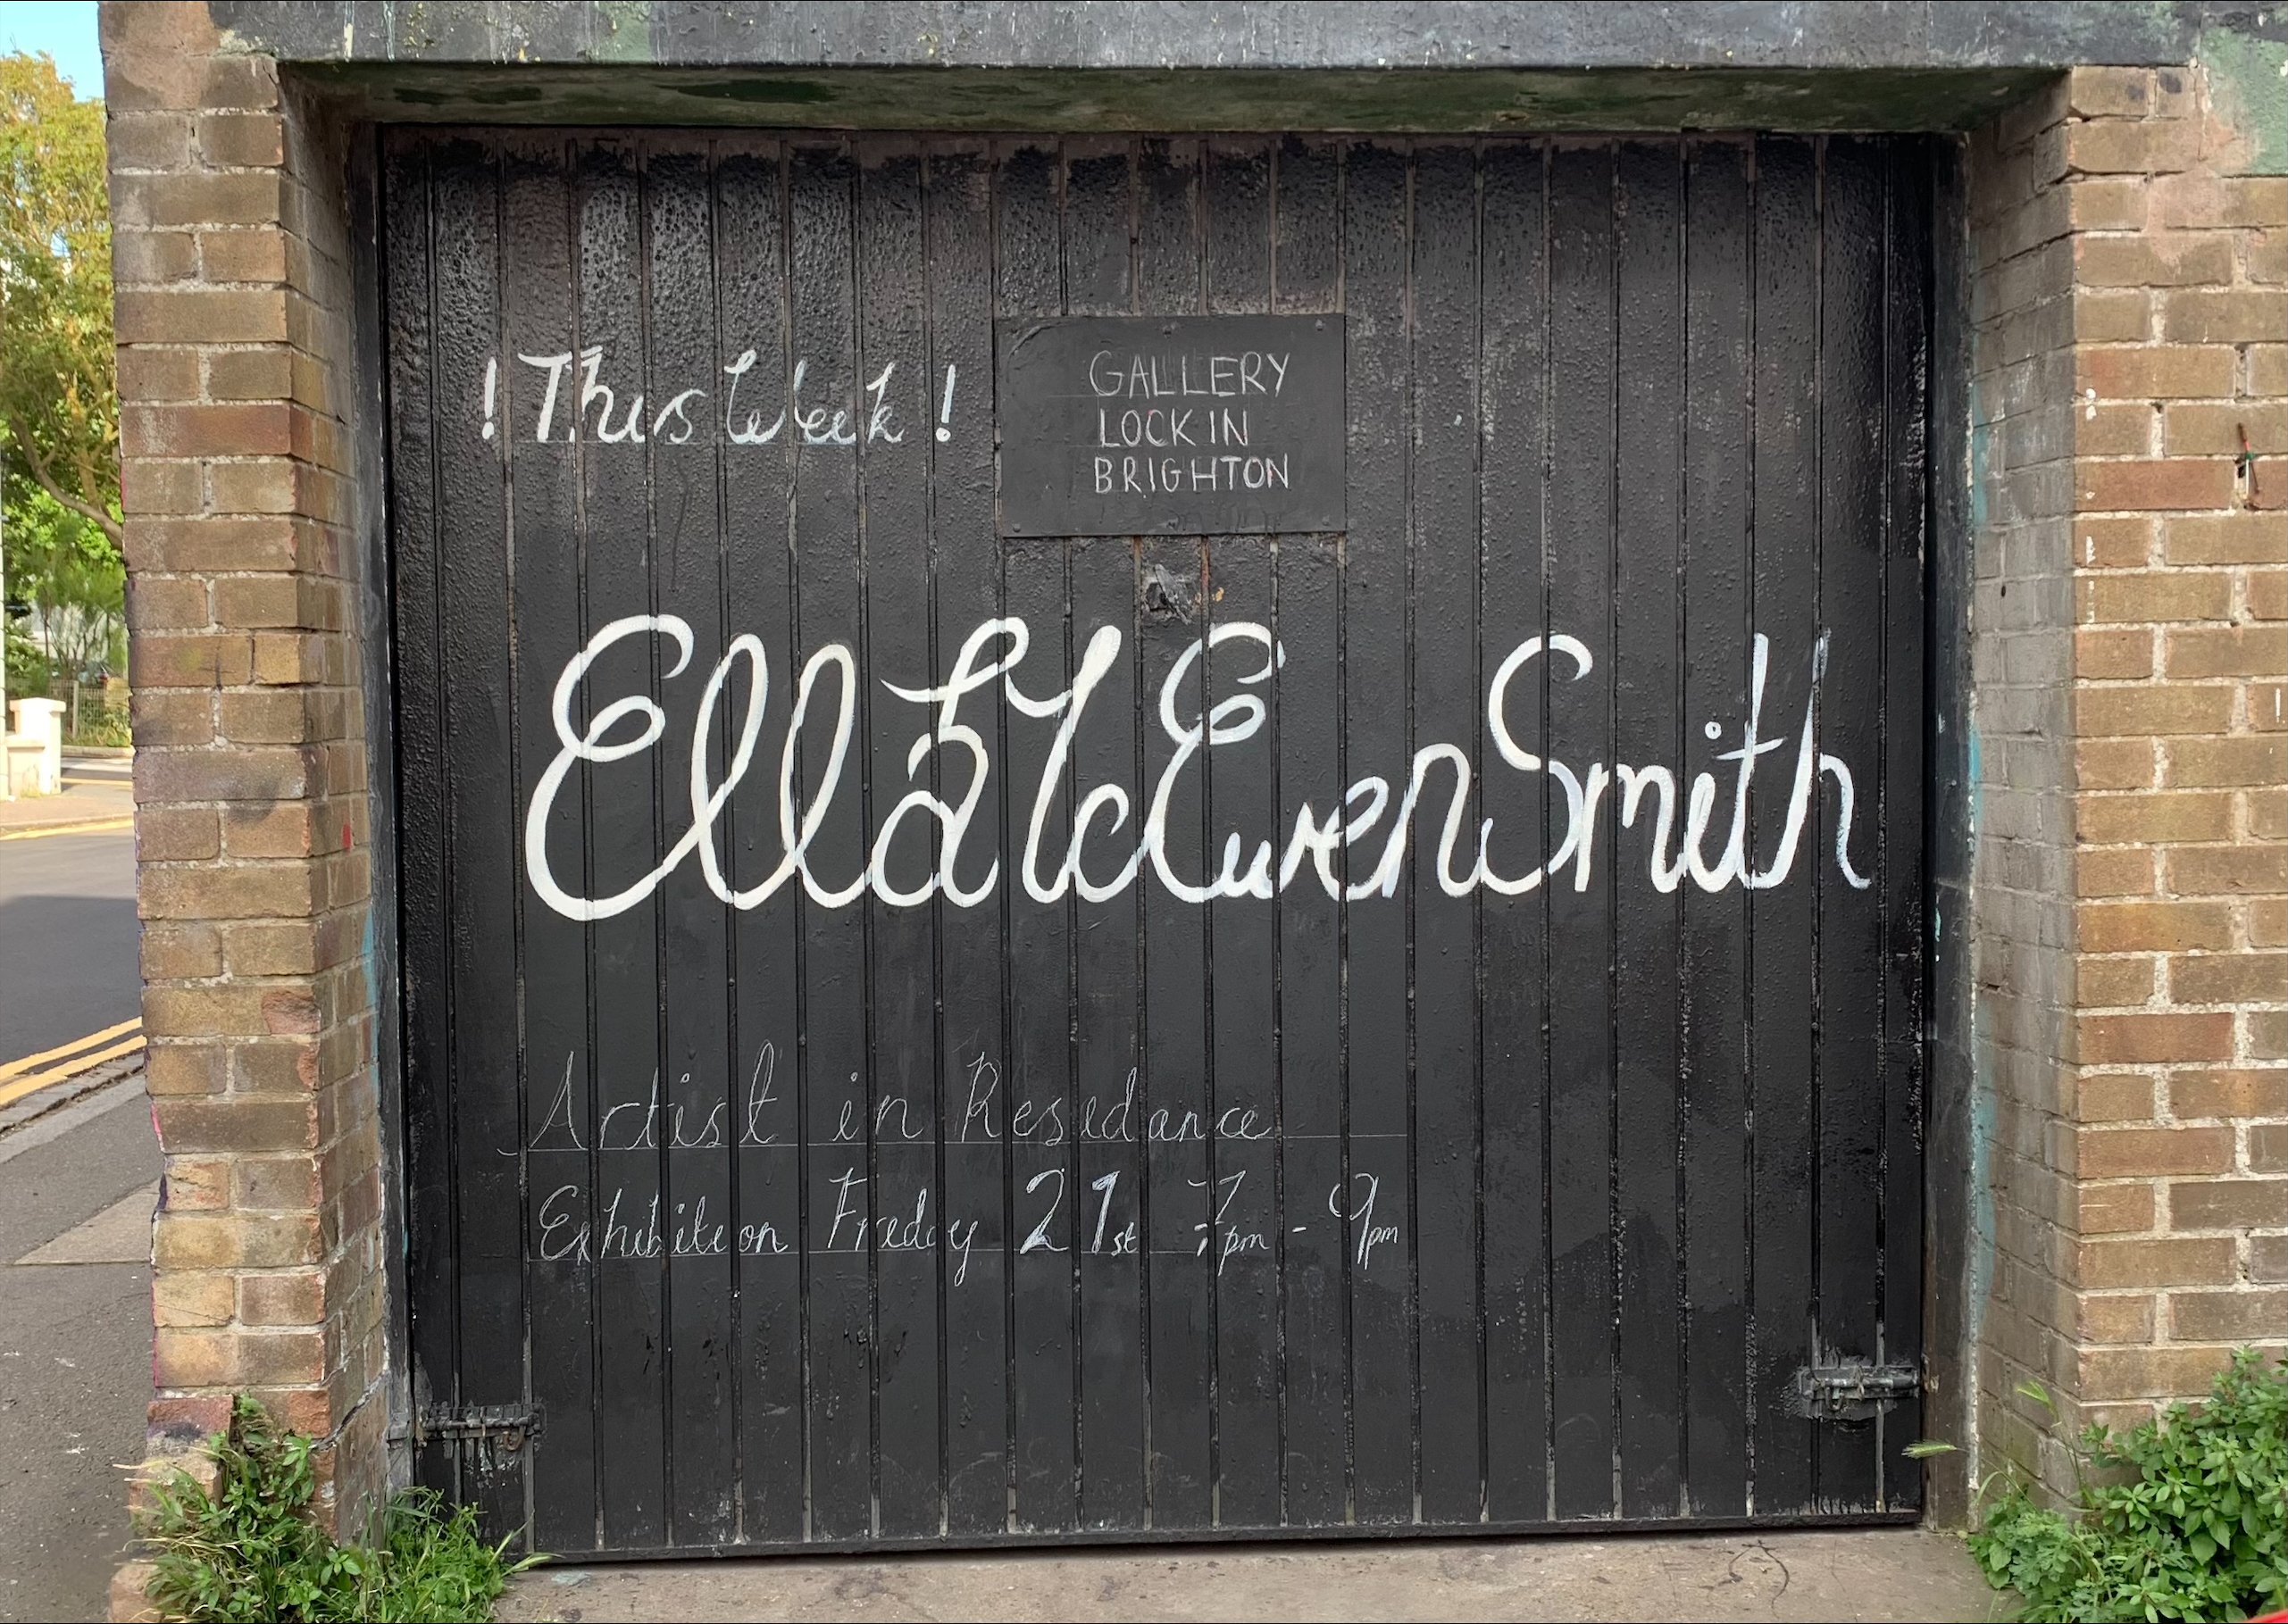 ! This Week !
GALLERY
LOCK IN
BRIGHTON
Ella McEwen Smith
Artist in Residance
Exhibition Friday 21st 7pm - 9pm